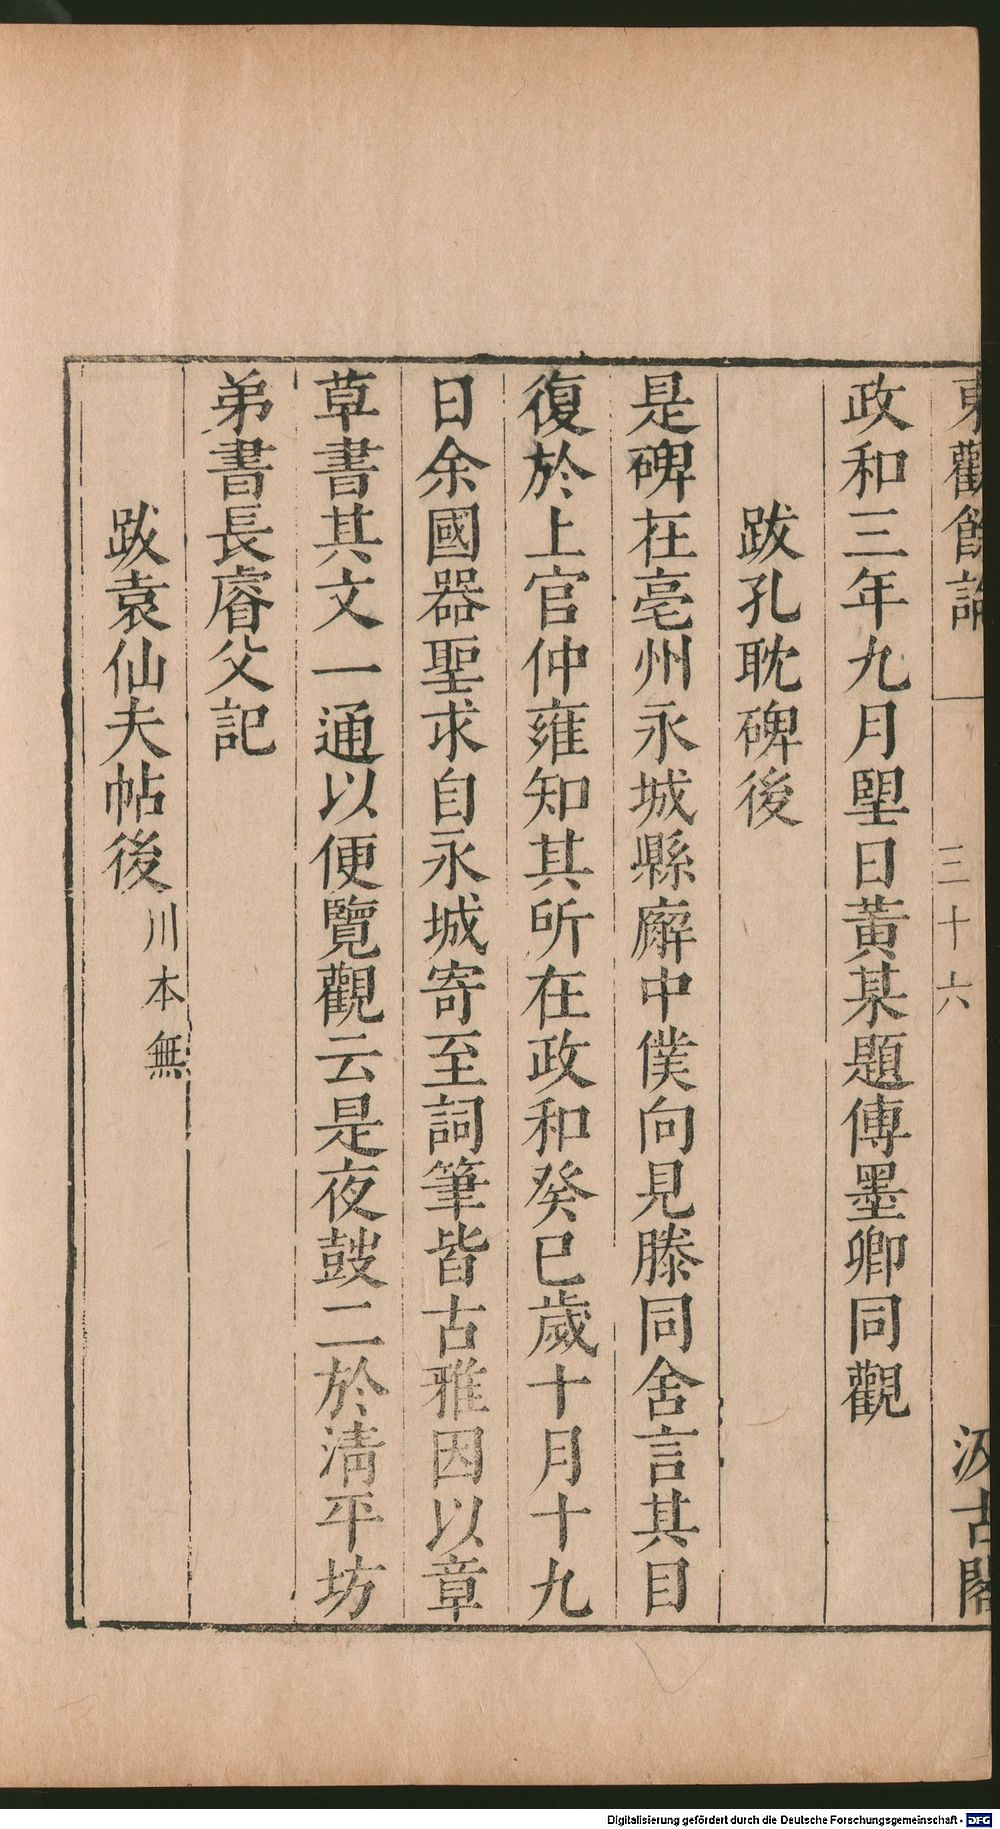 東觀餘論
三十六
汲古閣
政和三年九月朢日黃某題傅墨卿同觀
跋孔耽碑後
是碑在亳州永城縣廨中僕向見滕同舍言其目
復於上官仲雍知其所在政和癸巳歲十月十九
日余國器聖求自永城寄至詞筆皆古雅因以章
草書其文一通以便覽觀云是夜鼓二於清平坊
弟書長睿父記
跋袁仙夫帖後川本無
Digitalisierung gefördert durch die Deutsche Forschungsgemeinschaft - DFG